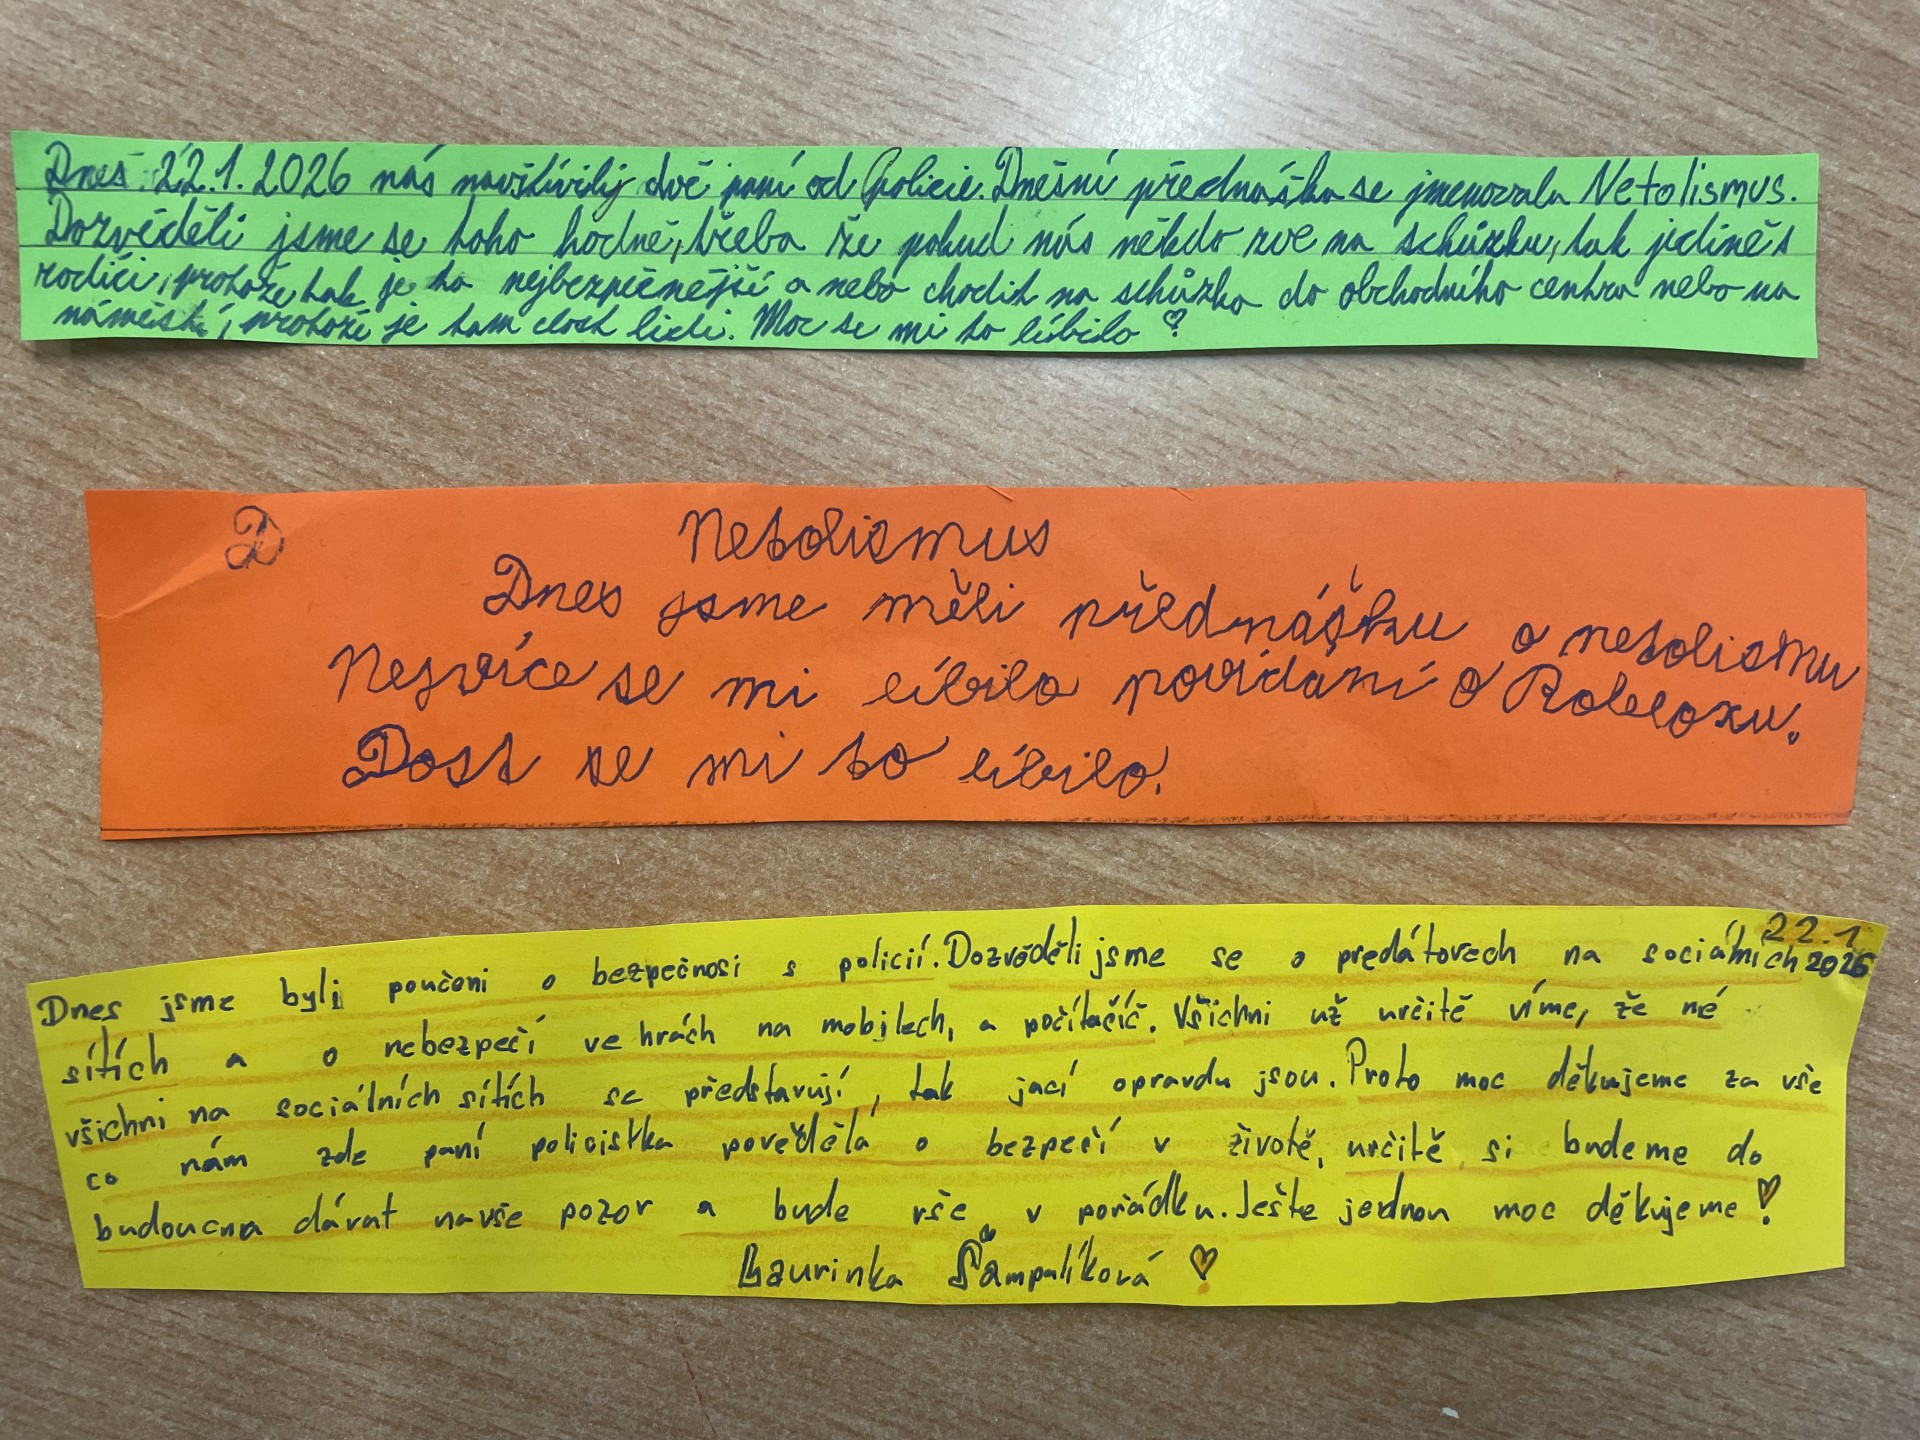 Dnes 22.1.2026 nás navštívily dvě paní od Policie. Dnešní přednáška se jmenovala Netolismus.
Dozvěděli jsme se toho hodně, třeba že pokud nás někdo zve na schůzku, tak jedině s
rodiči, protože tak je to nejbezpečnější a nebo chodit na schůzko do obchodního centra nebo na
náměstí, protože je tam dost lidi. Moc se mi to líbilo ♡
D
Netolismus
Dnes jsme měli přednášku o netolismu
Nejvíce se mi líbilo povídání o Robloxu.
Dost se mi to líbilo.
22.1
2026
Dnes jsme byli poučeni o bezpečnosi s policií. Dozvěděli jsme se o predátorech na sociálních
sítích a o nebezpečí ve hrách na mobilech, a počítačíč. Všichni už určitě víme, že né
všichni na sociálních sítích se představují, tak jací opravdu jsou. Proto moc děkujeme za vše
co nám zde paní policistka pověděla o bezpečí v životě, určitě si budeme do
budoucna dávat na vše pozor a bude vše v pořádku. Ješte jednou moc děkujeme ♡!
Laurinka Šámpalíková ♡